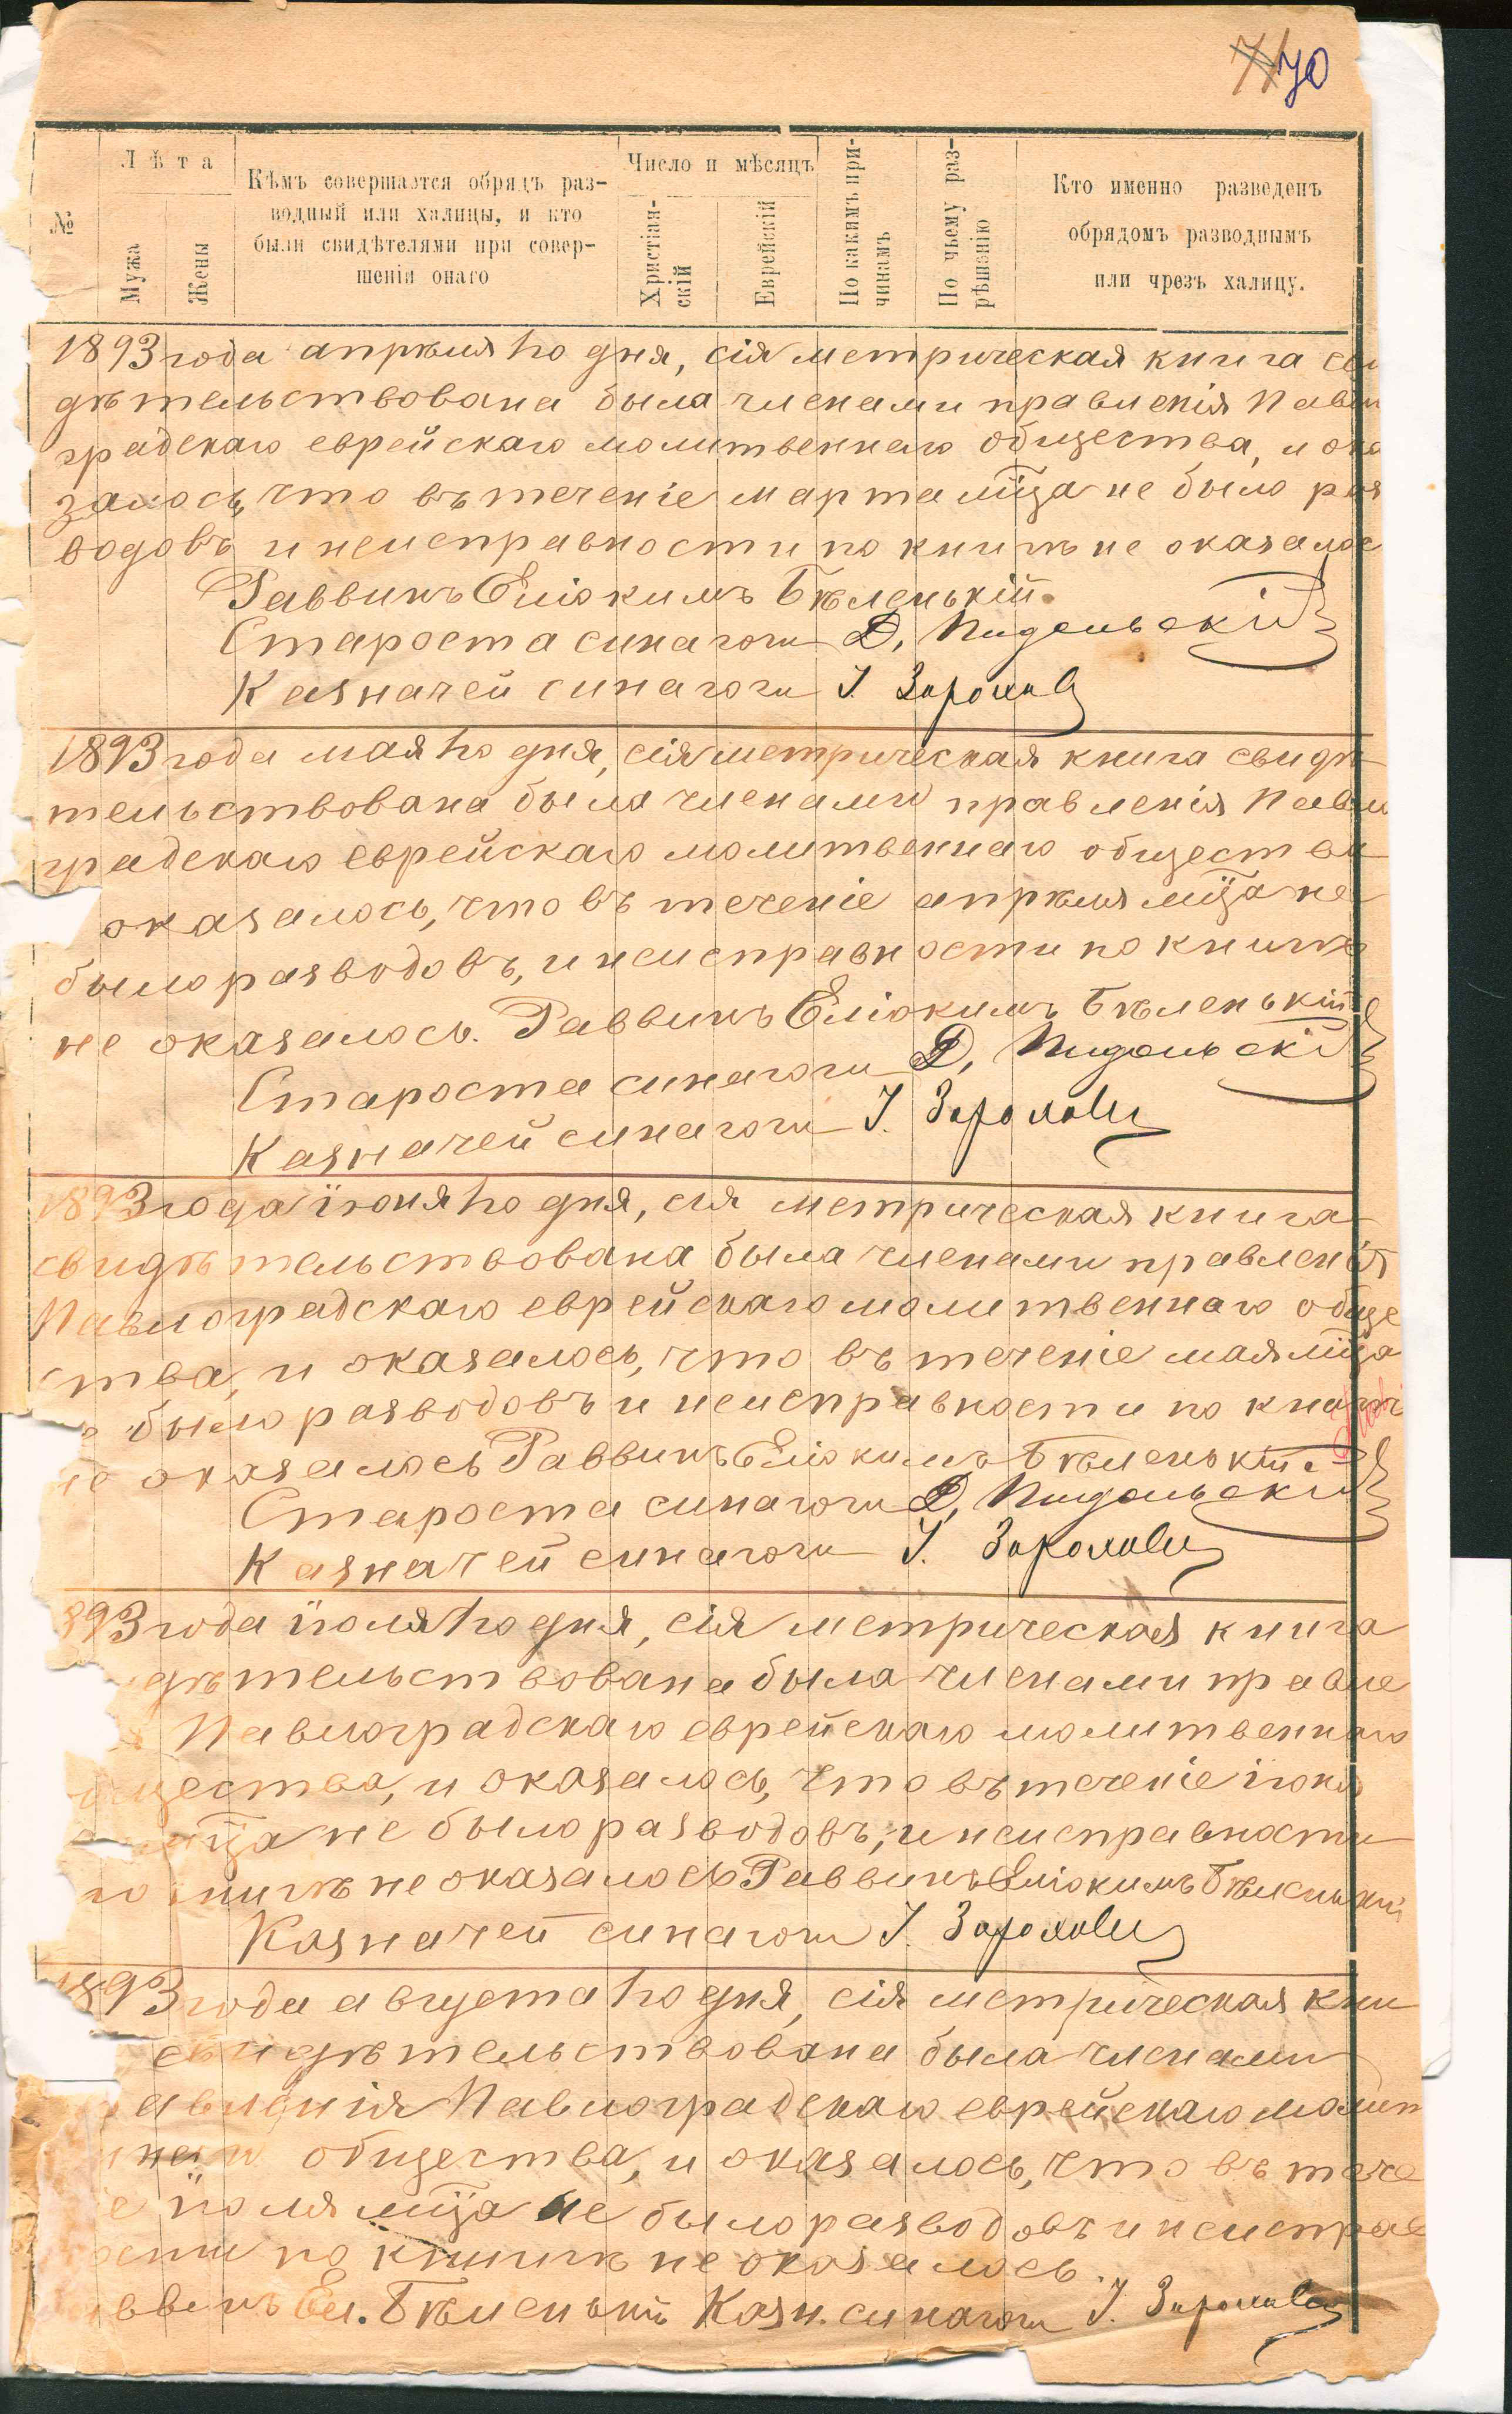 70
№
Лѣта
Мужа
Жены
Кѣмъ совершается обрядъ раз-
водный или халицы, и кто
были свидѣтелями при совер-
шеніи онаго
Число и мѣсяцъ
Христіан-
скій
Еврейскій
По какимъ при-
чинамъ
По чьему раз-
рѣшенію
Кто именно разведенъ
обрядомъ разводнымъ
или чрезъ халицу.
1893 года апрѣля 1го дня, сія метрическая книга сви
дѣтельствована была членами правленія Павло
градскаго еврейскаго молитвеннаго общества, и ока
залось, что въ теченіе марта мца не было раз
водовъ и неисправности по книгѣ не оказалос
Раввинъ Еліокимъ Бѣленькій
Староста синагоги Д.
Казначей синагоги
1893 года мая 1го дня, сія метрическая книга свидѣ
тельствована была членами правленія Павло
градскаго еврейскаго молитвеннаго общества
оказалось, что въ теченіе апрѣля мца не
было разводовъ, и неисправности по книгѣ
не оказалось. Раввинъ Еліокимъ Бѣленькій
Староста синагоги Д.
Казначей синагоги
1893 года іюня 1го дня, сія метрическая книга
свидѣтельствована была членами правленія
Павлоградскаго еврейскаго молитвеннаго обще
ства, и оказалось, что въ теченіе мая мца
было разводовъ и неисправности по книгѣ
не оказалось Раввинъ Еліокимъ Бѣленькій
Староста синагоги Д.
Казначей синагоги
893 года іюля 1го дня, сія метрическая книга
дѣтельствована была членами правле
Павлоградскаго еврейскаго молитвеннаго
щества, и оказалось, что въ теченіе іюня
мца не было разводовъ, и неисправности
по книгѣ не оказалось Раввинъ Еліокимъ Бѣленькій
Казначей синагоги
1893 года августа 1го дня, сія метрическая кни
свидѣтельствована была членами
авленія Павлоградскаго еврейскаго молит
наго общества, и оказалось, что въ тече
е іюля мца не было разводовъ и неисправ
ости по книгѣ не оказалось.
ввинъ Ел. Бѣленькій Казн. синагоги